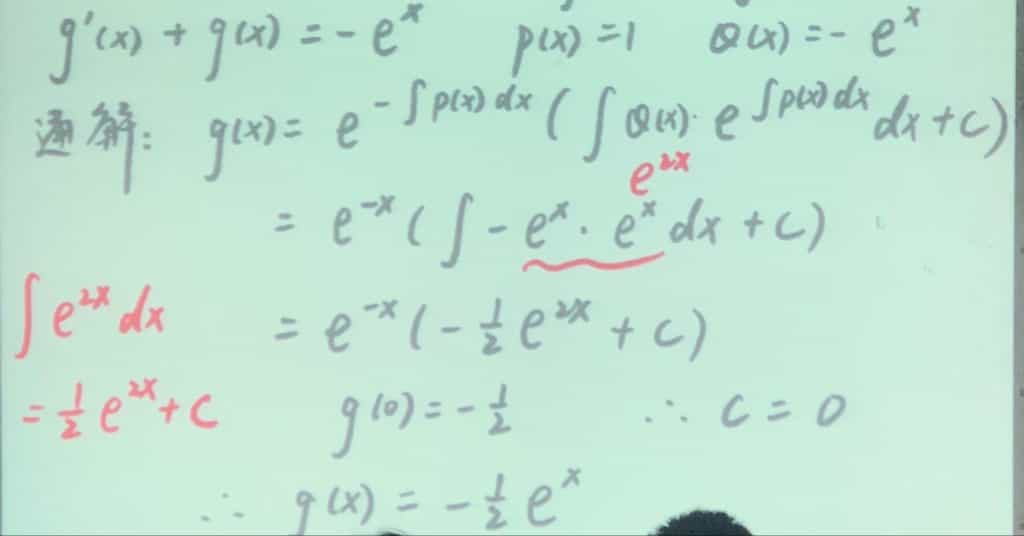 g'(x) + g(x) = - e^x p(x) = 1 Q(x) = - e^x
通解: g(x) = e^{-∫p(x)dx} ( ∫ Q(x)· e^{∫p(x)dx} dx + C )
e^{2x}
= e^{-x} ( ∫ - e^x · e^x dx + C )
∫ e^{2x} dx = e^{-x} ( - 1/2 e^{2x} + C )
= 1/2 e^{2x} + C g(0) = - 1/2 ∴ C = 0
∴ g(x) = - 1/2 e^x